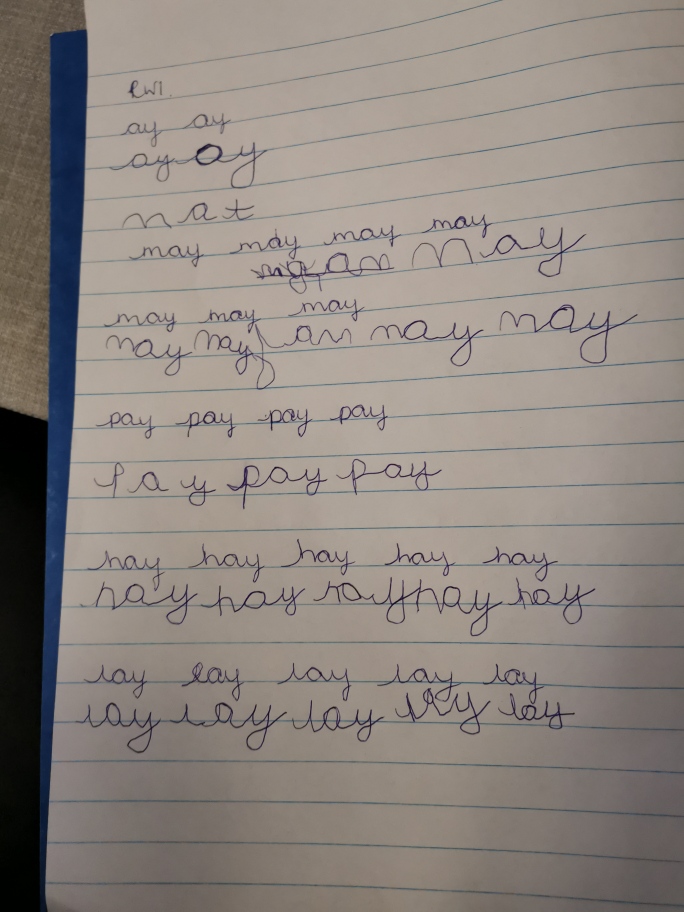 RWI.
ay ay
ay ay
nat
may may may may
an may
may may may
may may an may may
pay pay pay pay
pay pay pay
hay hay hay hay hay
hay hay hay hay hay
lay lay lay lay lay
lay lay lay lay lay